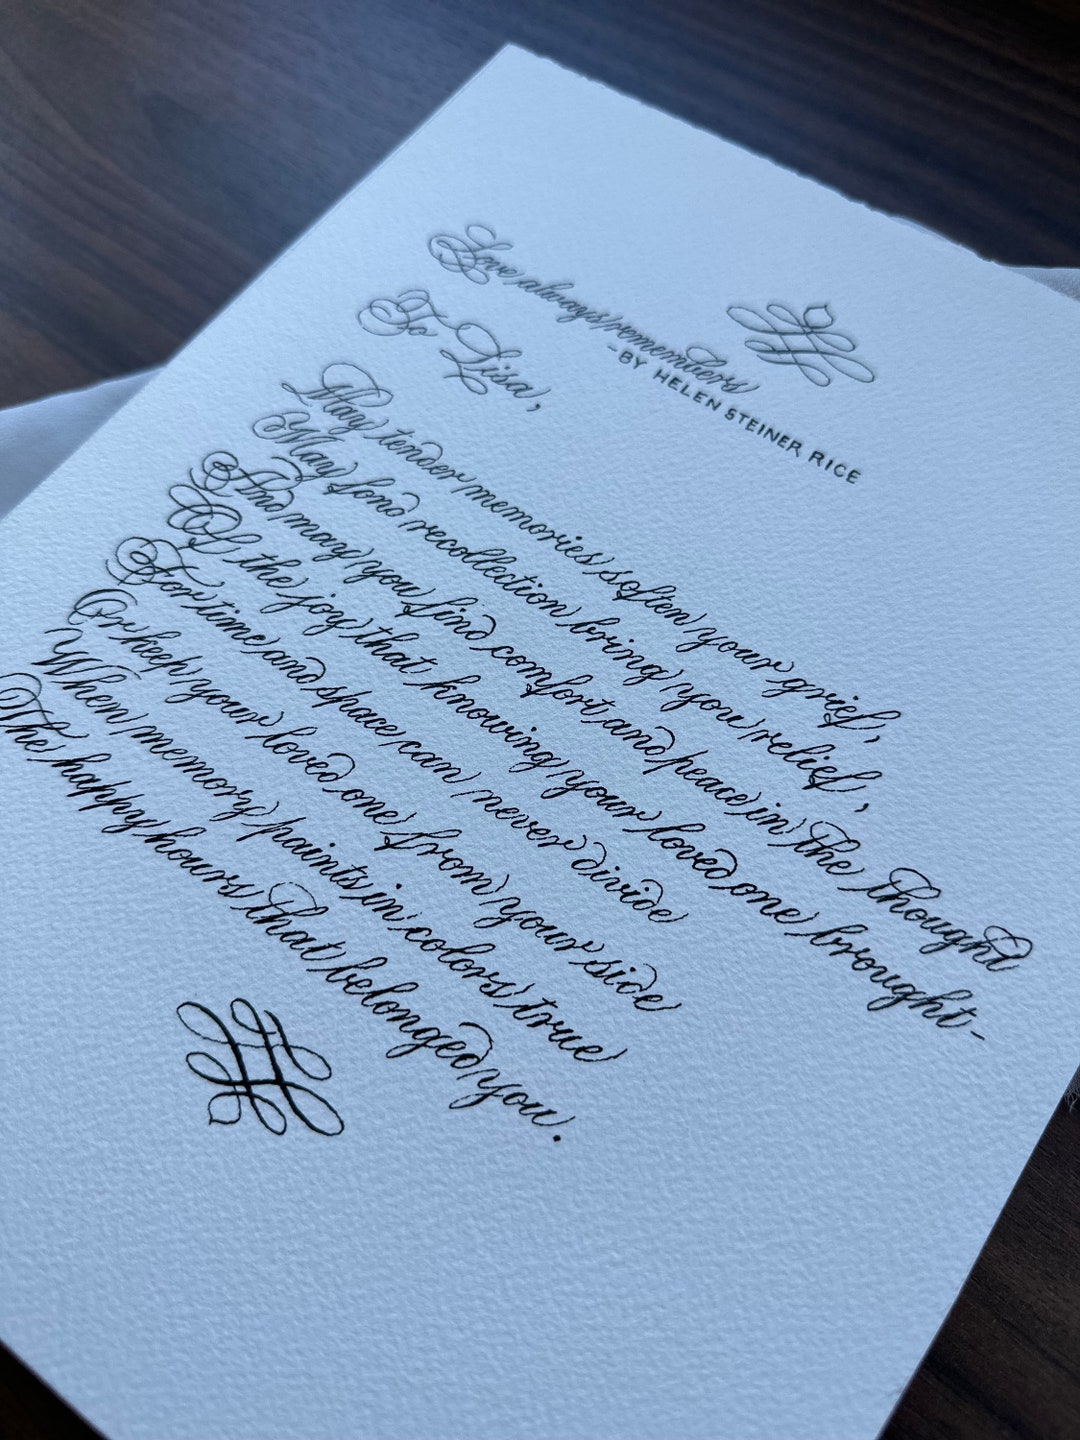 Love always remembers
-BY HELEN STEINER RICE
To Lisa,
May tender memories soften your grief,
May fond recollection bring you relief,
And may you find comfort and peace in the thought
Of the joy that knowing your loved one brought-
For time and space can never divide
Or keep your loved one from your side
When memory paints in colors true
The happy hours that belonged you.